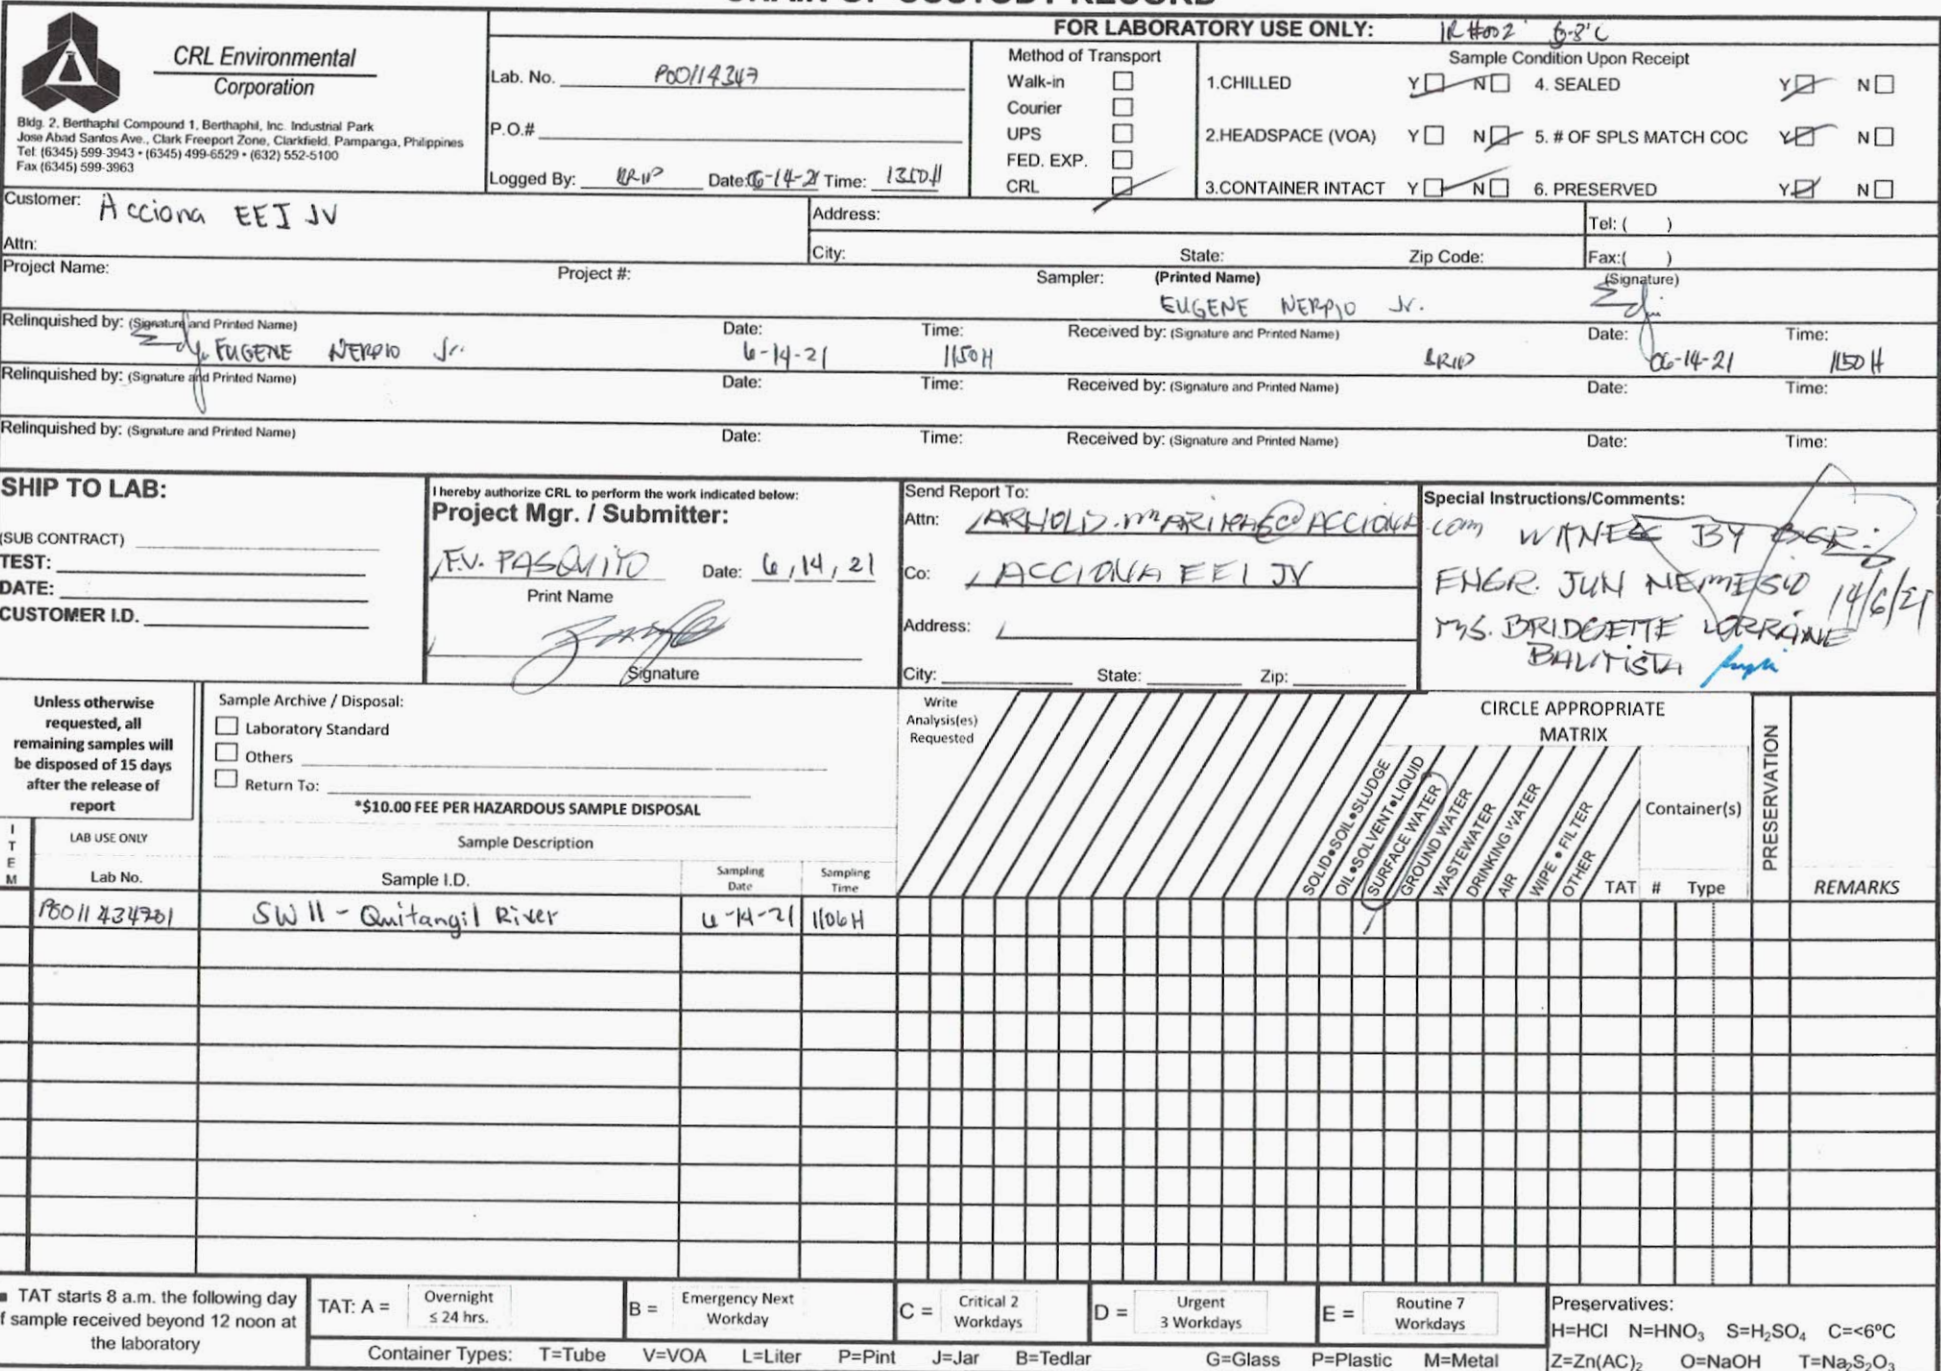 CHAIN OF CUSTODY RECORD
CRL Environmental
Corporation
Bldg. 2, Berthaphil Compound 1, Berthaphil, Inc. Industrial Park
Jose Abad Santos Ave., Clark Freeport Zone, Clarkfield, Pampanga, Philippines
Tel: (6345) 599-3943 • (6345) 499-6529 • (632) 552-5100
Fax (6345) 599-3963
Lab. No. P00114347
P.O.#
Logged By: Date: 06-14-21 Time: 1350H
FOR LABORATORY USE ONLY: IR#002
Method of Transport
Walk-in
Courier
UPS
FED. EXP.
CRL
Sample Condition Upon Receipt
1.CHILLED Y N 4. SEALED Y N
2.HEADSPACE (VOA) Y N 5. # OF SPLS MATCH COC Y N
3.CONTAINER INTACT Y N 6. PRESERVED Y N
Customer: Acciona EEI JV
Attn:
Address:
Tel: ( )
City: State: Zip Code: Fax:( )
Project Name: Project #: Sampler: (Printed Name) (Signature)
EUGENE NERPIO Jr.
Relinquished by: (Signature and Printed Name) Date: Time: Received by: (Signature and Printed Name) Date: Time:
EUGENE NERPIO Jr. 6-14-21 1150H 06-14-21 1150H
Relinquished by: (Signature and Printed Name) Date: Time: Received by: (Signature and Printed Name) Date: Time:
Relinquished by: (Signature and Printed Name) Date: Time: Received by: (Signature and Printed Name) Date: Time:
SHIP TO LAB:
(SUB CONTRACT)
TEST:
DATE:
CUSTOMER I.D.
I hereby authorize CRL to perform the work indicated below:
Project Mgr. / Submitter:
F.V. PASQUITO Date: 6, 14, 21
Print Name
Signature
Send Report To:
Attn: @ACCIONA.com
Co: ACCIONA EEI JV
Address:
City: State: Zip:
Special Instructions/Comments:
WITNESS BY
ENGR. JUN NEMESIO 14/6/21
MS. BRIDGETTE LORRAINE
BAUTISTA
Unless otherwise
requested, all
remaining samples will
be disposed of 15 days
after the release of
report
Sample Archive / Disposal:
Laboratory Standard
Others
Return To:
*$10.00 FEE PER HAZARDOUS SAMPLE DISPOSAL
Write
Analysis(es)
Requested
CIRCLE APPROPRIATE
MATRIX
SOLID•SOIL•SLUDGE
OIL•SOLVENT•LIQUID
SURFACE WATER
GROUND WATER
WASTEWATER
DRINKING WATER
AIR
WIPE • FILTER
OTHER
TAT
Container(s)
# Type
PRESERVATION
REMARKS
ITEM
LAB USE ONLY
Lab No.
Sample Description
Sample I.D.
Sampling
Date
Sampling
Time
P0011434701 SW 11 - Quitangil River 6-14-21 1106H
TAT starts 8 a.m. the following day
if sample received beyond 12 noon at
the laboratory
TAT: A = Overnight
≤ 24 hrs.
B = Emergency Next
Workday
C = Critical 2
Workdays
D = Urgent
3 Workdays
E = Routine 7
Workdays
Container Types: T=Tube V=VOA L=Liter P=Pint J=Jar B=Tedlar G=Glass P=Plastic M=Metal
Preservatives:
H=HCl N=HNO₃ S=H₂SO₄ C=<6ºC
Z=Zn(AC)₂ O=NaOH T=Na₂S₂O₃